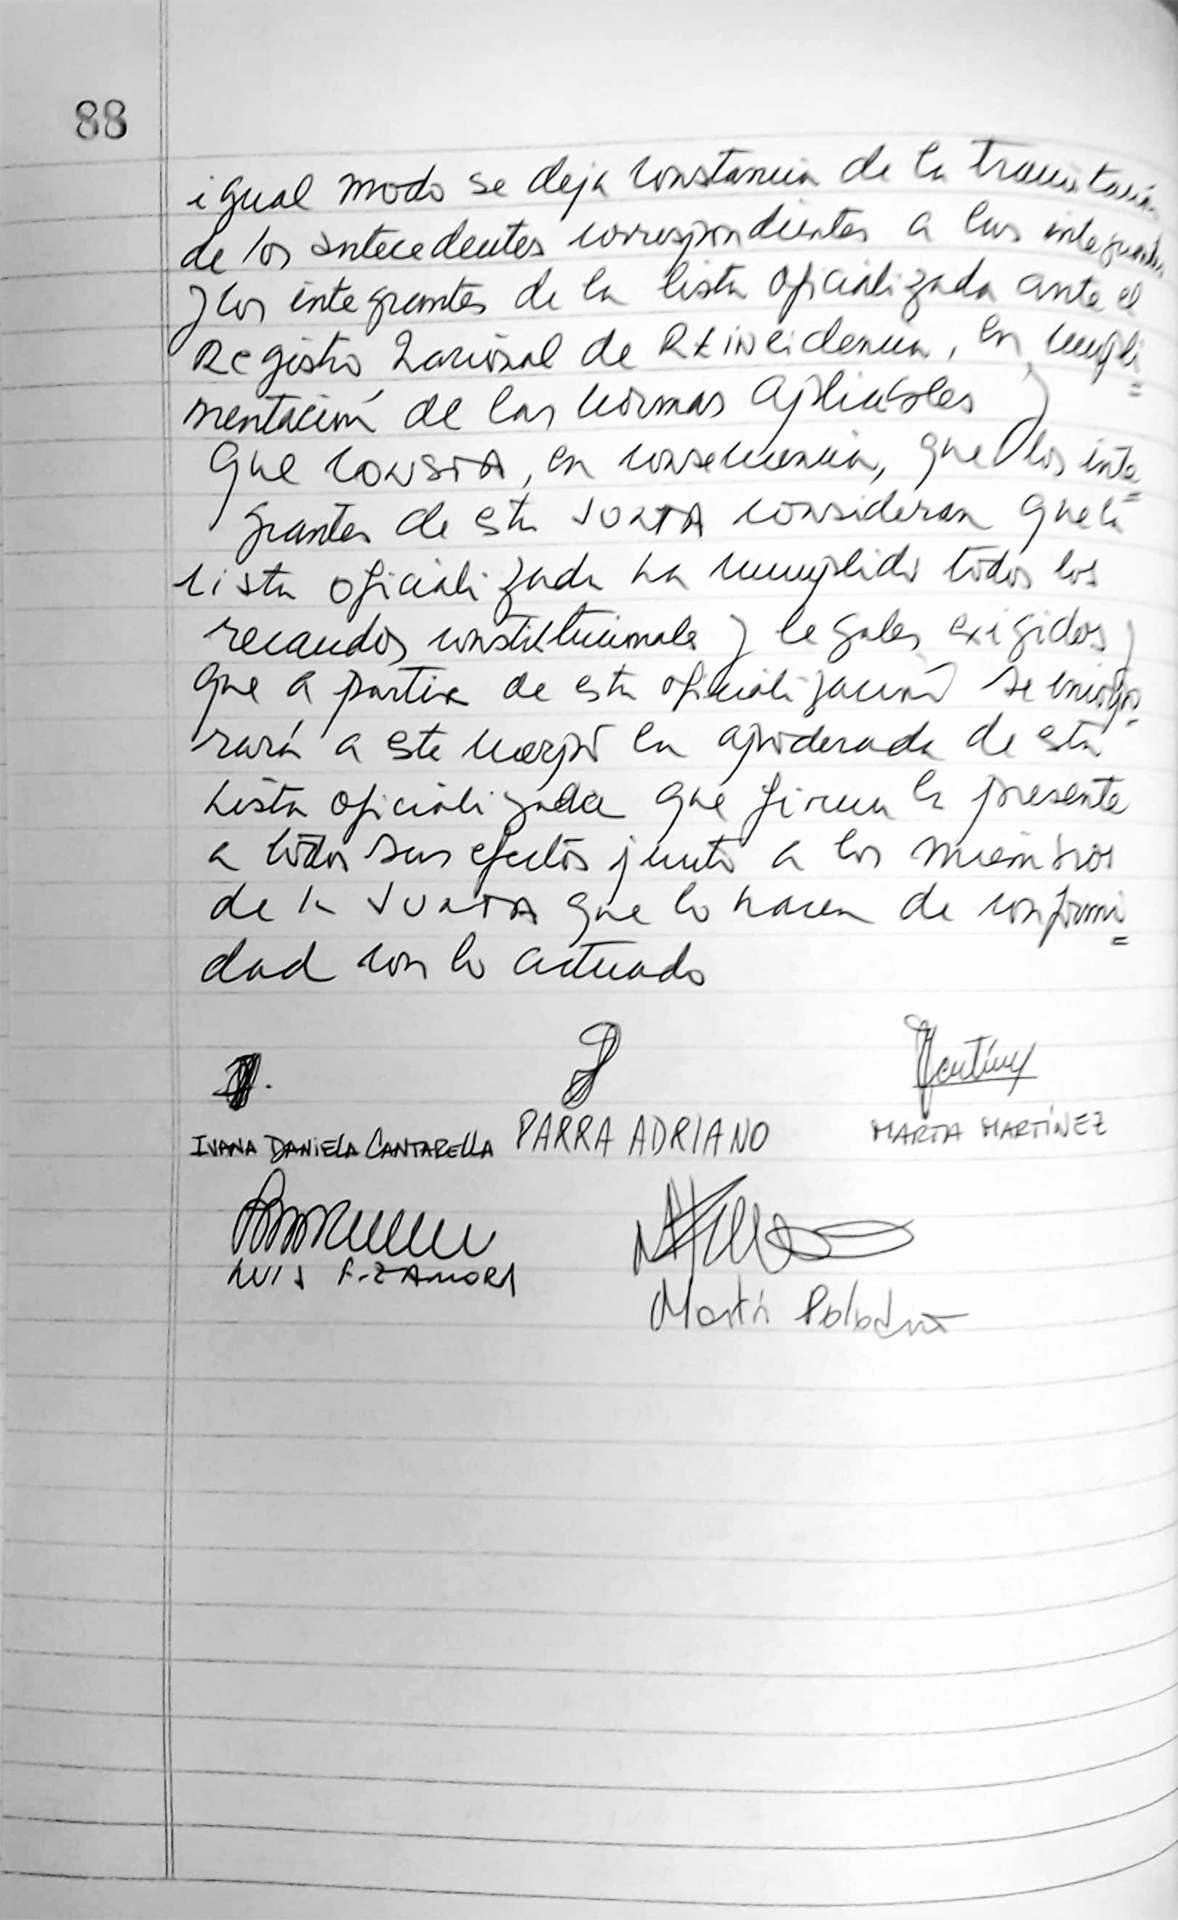 88
igual modo se deja constancia de la tramitación
de los antecedentes correspondientes a las integrantes
y los integrantes de la lista oficializada ante el
Registro Nacional de Reincidencia, en cumpli=
mentación de las normas aplicables y
que CONSTA, en consecuencia, que los inte=
grantes de esta JUNTA consideran que la
lista oficializada ha cumplido todos los
recaudos constitucionales y legales exigidos y
que a partir de esta oficialización se incorpo=
rará a este cuerpo la apoderada de esta
lista oficializada que firma la presente
a todos sus efectos junto a los miembros
de la JUNTA que lo hacen de conformi=
dad con lo actuado
IVANA DANIELA CANTARELLA PARRA ADRIANO MARTA MARTÍNEZ
LUIS F. ZAMORA
Martín